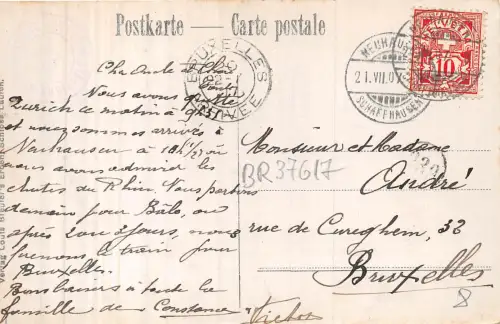 Postkarte — Carte postale
BRUXELLES
ARRIVÉE
NEUHAUSEN
21.VII.0
SCHAFFHAUSEN
HELVETIA
10
Cher Oncle et Chère
Tante
Nous avons quitté
Zurich ce matin à 9h
et nous sommes arrivés à
Neuhausen à 10 h ½ où
nous avons admiré les
chutes du Rhin. Nous partons
demain pour Bâle, où
après 2 ou 3 jours, nous
prenons le train pour
Bruxelles.
Bons baisers à toute la
famille de Constance
Victor
BR37617
Monsieur et Madame
André
rue de Cureghem, 32
Bruxelles
8